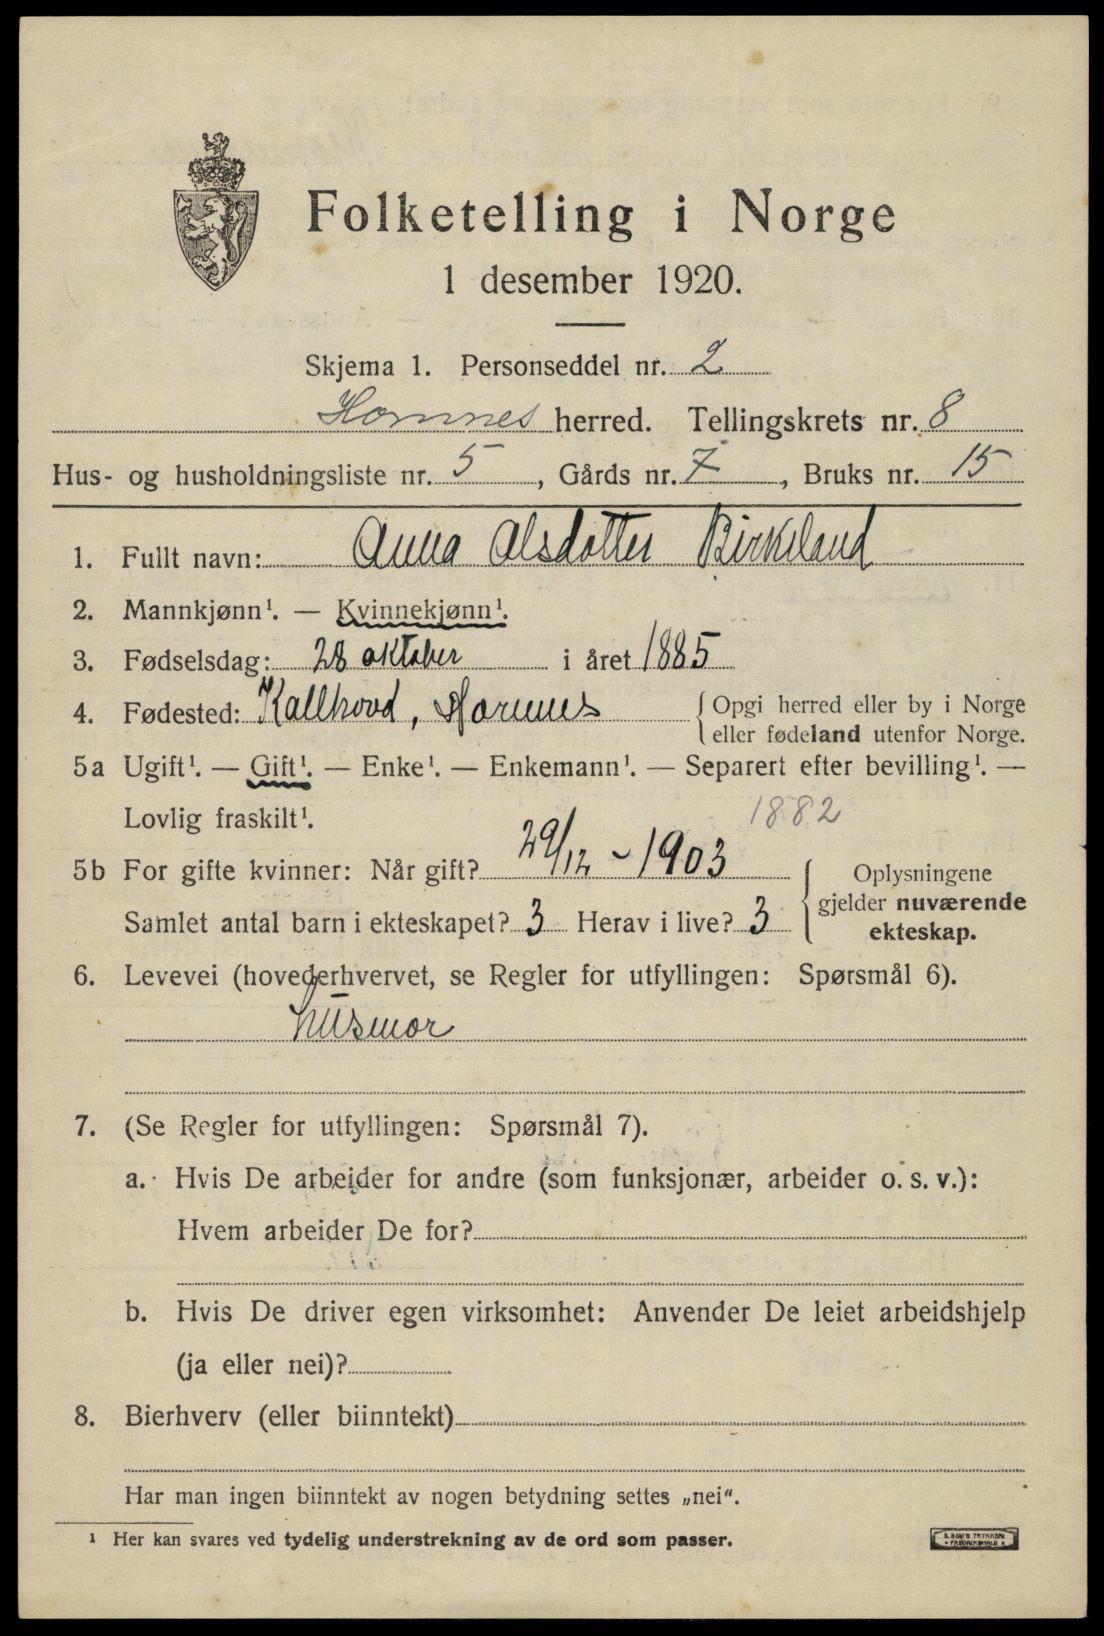 Folketelling i Norge
1 desember 1920.
Skjema 1. Personseddel nr. 2
Hornnes herred. Tellingskrets nr. 8
Hus- og husholdningsliste nr. 5, Gårds nr. 7, Bruks nr. 15
1. Fullt navn: Anna Olsdotter Birkeland
2. Mannkjønn¹. — Kvinnekjønn¹.
3. Fødselsdag: 28 oktober i året 1885
4. Fødested: Kallhovd, Hornnes { Opgi herred eller by i Norge
eller fødeland utenfor Norge.
5a Ugift¹. — Gift¹. — Enke¹. — Enkemann¹. — Separert efter bevilling¹. —
Lovlig fraskilt¹. 1882
5b For gifte kvinner: Når gift? 29/12 - 1903 { Oplysningene
Samlet antal barn i ekteskapet? 3 Herav i live? 3 gjelder nuværende
ekteskap.
6. Levevei (hovederhvervet, se Regler for utfyllingen: Spørsmål 6).
husmor
7. (Se Regler for utfyllingen: Spørsmål 7).
a. Hvis De arbeider for andre (som funksjonær, arbeider o. s. v.):
Hvem arbeider De for?
b. Hvis De driver egen virksomhet: Anvender De leiet arbeidshjelp
(ja eller nei)?
8. Bierhverv (eller biinntekt)
Har man ingen biinntekt av nogen betydning settes „nei“.
¹ Her kan svares ved tydelig understrekning av de ord som passer.